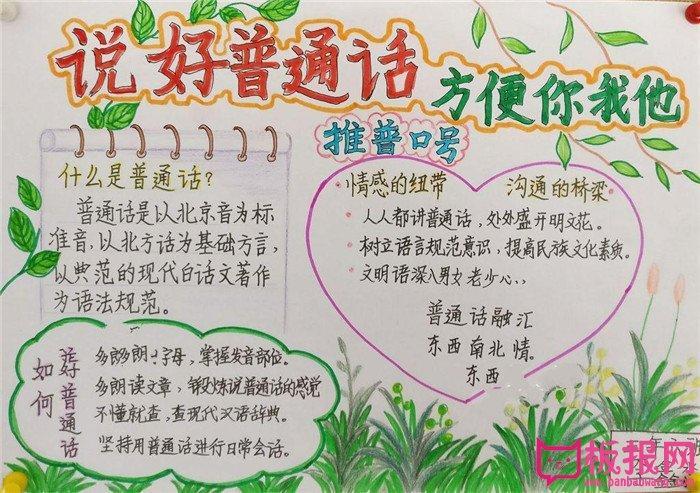 说好普通话
方便你我他
推普口号
什么是普通话?
普通话是以北京音为标
准音,以北方话为基础方言,
以典范的现代白话文著作
为语法规范。
·情感的纽带 沟通的桥梁·
·人人都讲普通话,处处盛开明文花。
·树立语言规范意识,提高民族文化素质。
·文明语深入男女老少心,
普通话融汇
东西南北情。
东西
如何
好普通话
多朗 字母,掌握发音部位。
多朗读文章,锻炼说普通话的感觉
不懂就查,查现代汉语辞典。
坚持用普通话进行日常会话。
板报网
www.banbaowang.com